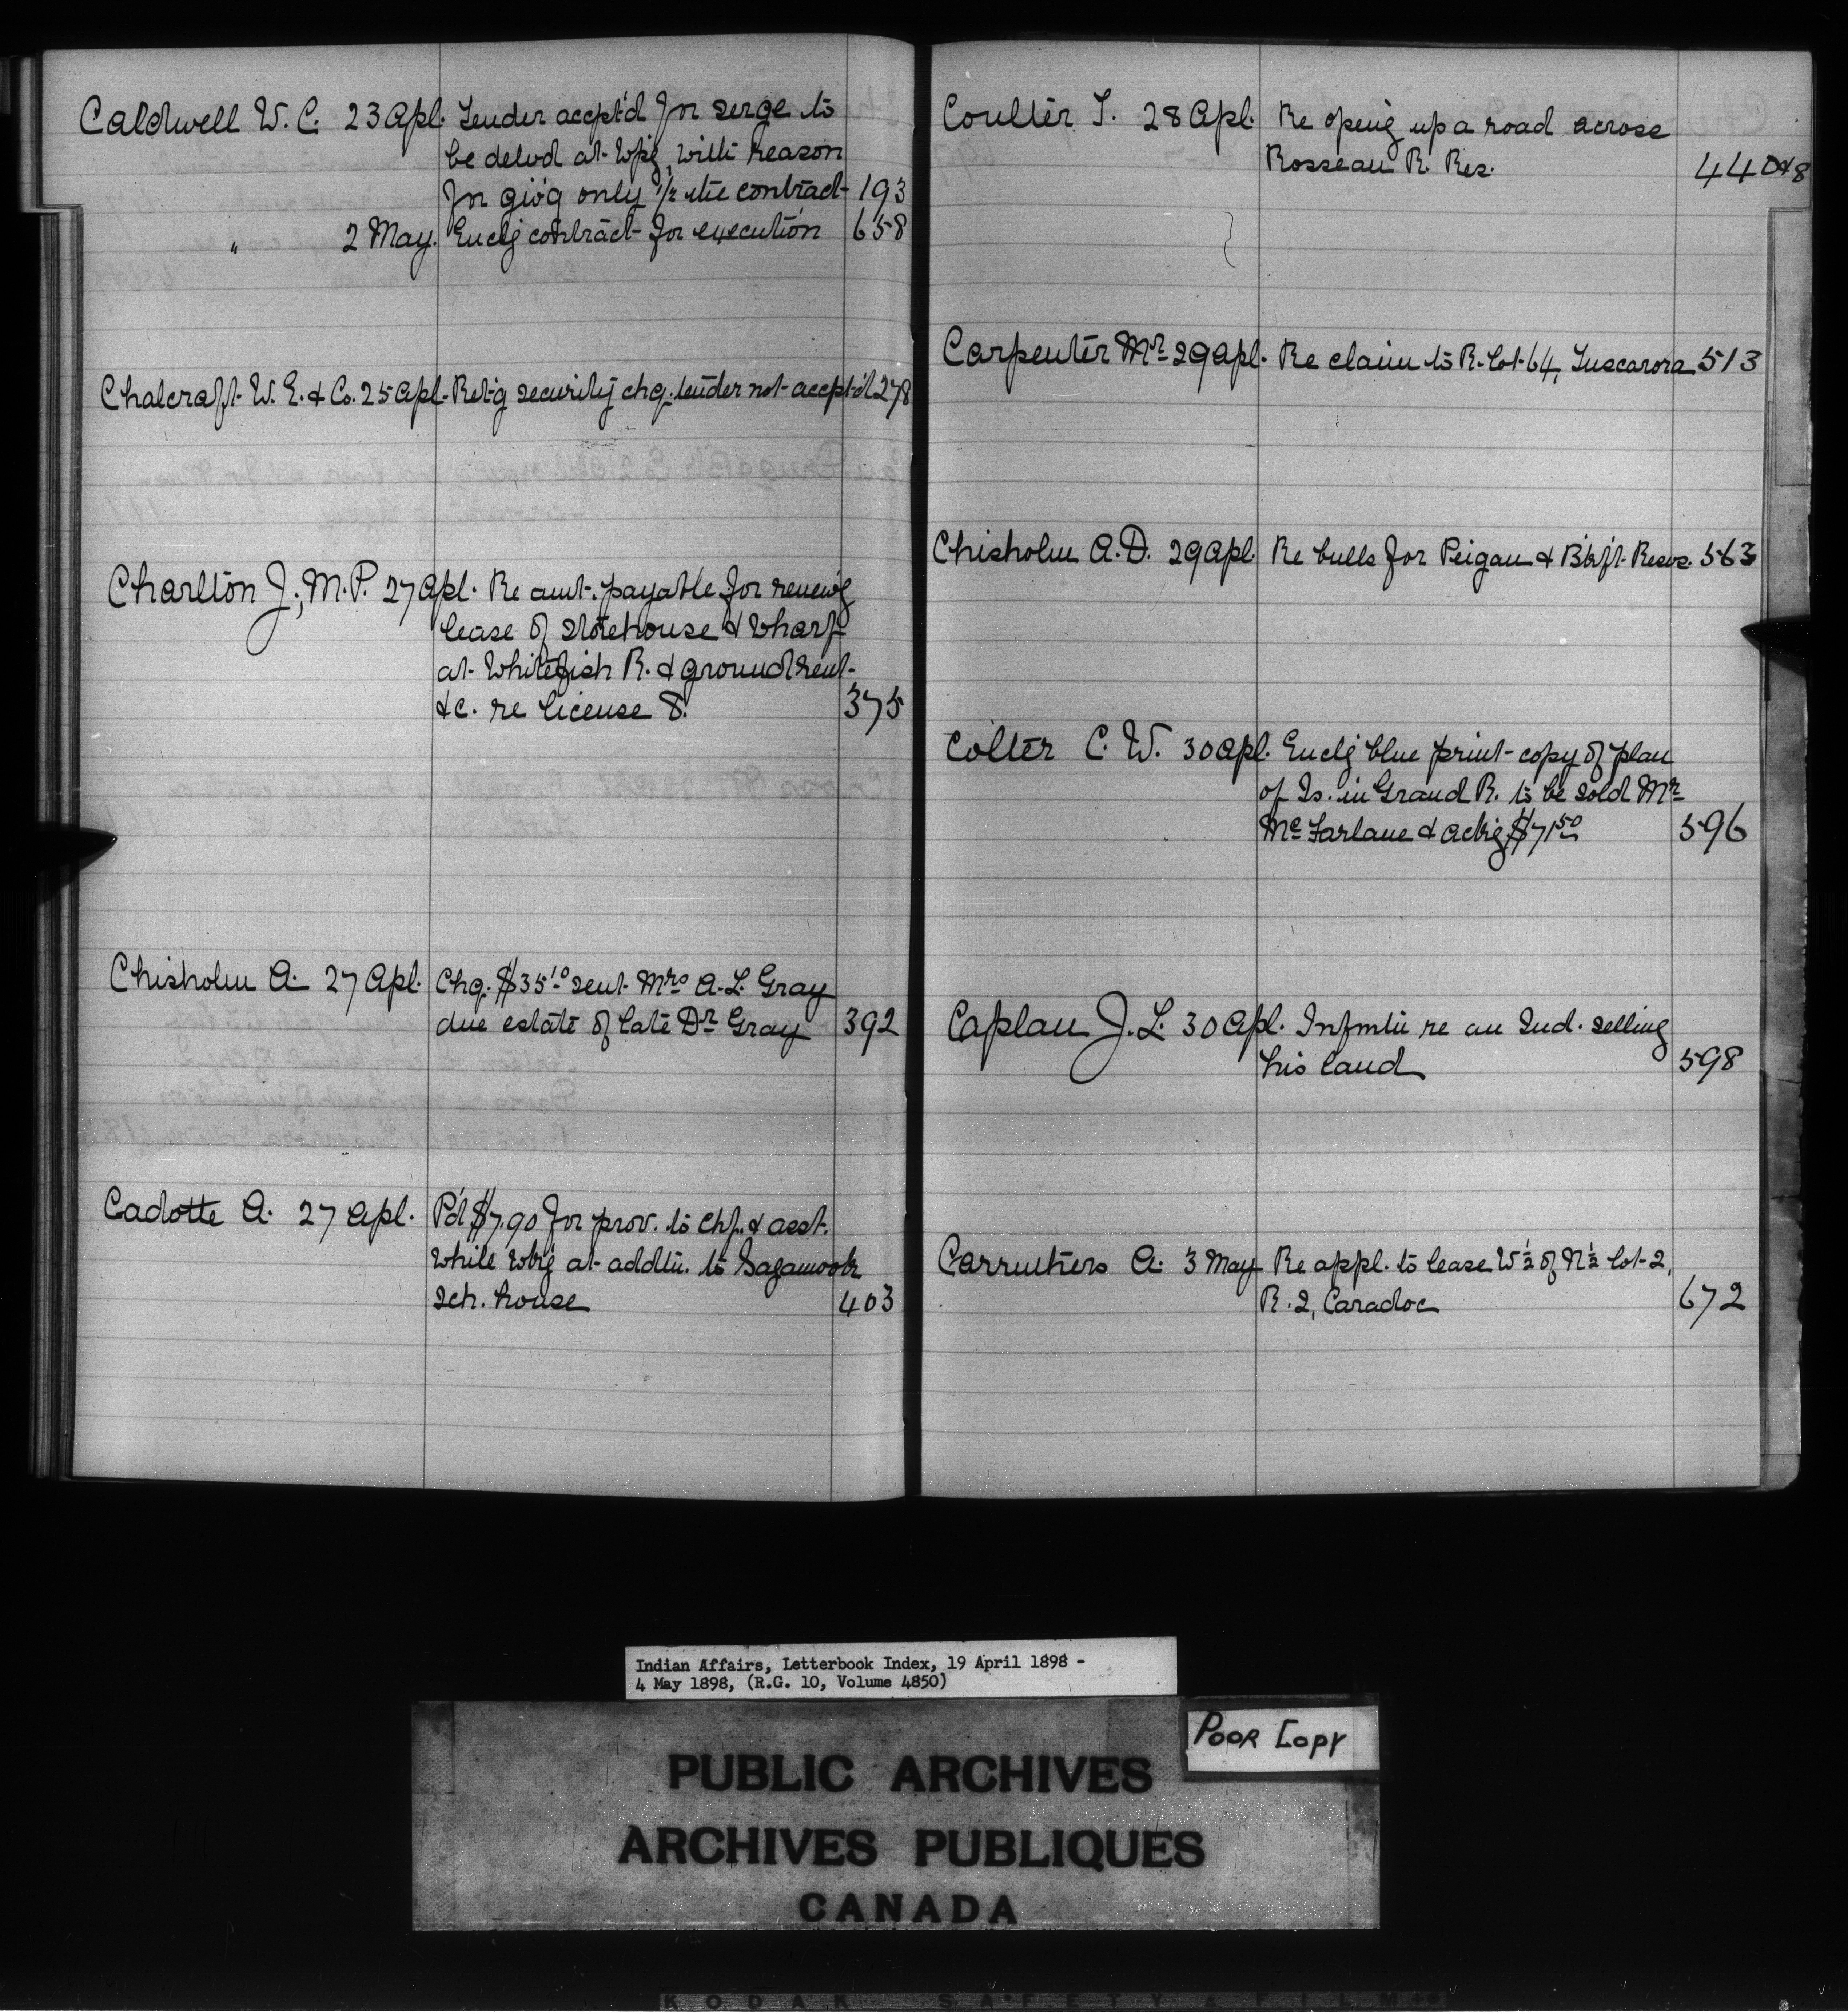 Caldwell W. C. 23 Apl. Tender accept'd for serge to
be delvd at Wpg, with reason
for giv'g only 1/2 the contract 193
" 2 May. Enclg contract for execution 658
Chalcraft W. E. & Co. 25 Apl. Ret'g security chq. tender not accept'd 278
Charlton J., M.P. 27 Apl. Re amt. payable for renewg
lease of storehouse & wharf
at Whitefish R. & ground rent
&c. re license 8. 375
Chisholm A. 27 Apl. Chq. $35.10 sent Mrs A. L. Gray
due estate of late Dr Gray 392
Cadotte A. 27 Apl. P'd $7.90 for prov. to chf. & asst.
while wkg at addtn. to Sagamook
sch. house 403
Coulter T. 28 Apl. Re openg up a road across
Rosseau R. Res. 440
Carpenter Mr 29 Apl. Re claim to R. Lot 64, Tuscarora 513
Chisholm A. D. 29 Apl. Re bulls for Peigan & Blkft Resvs. 563
Colter C. W. 30 Apl. Enclg blue print copy of plan
of Is. in Grand R. to be sold Mr
McFarlane & ackg $71.50 596
Caplan J. L. 30 Apl. Infmtn re an Ind. selling
his land 598
Carruthers A. 3 May Re appl. to lease W 1/2 of N 1/2 Lot 2,
R. 2, Caradoc 672
Indian Affairs, Letterbook Index, 19 April 1898 -
4 May 1898, (R.G. 10, Volume 4850)
Poor Copy
PUBLIC ARCHIVES
ARCHIVES PUBLIQUES
CANADA
KODAK SAFETY FILM